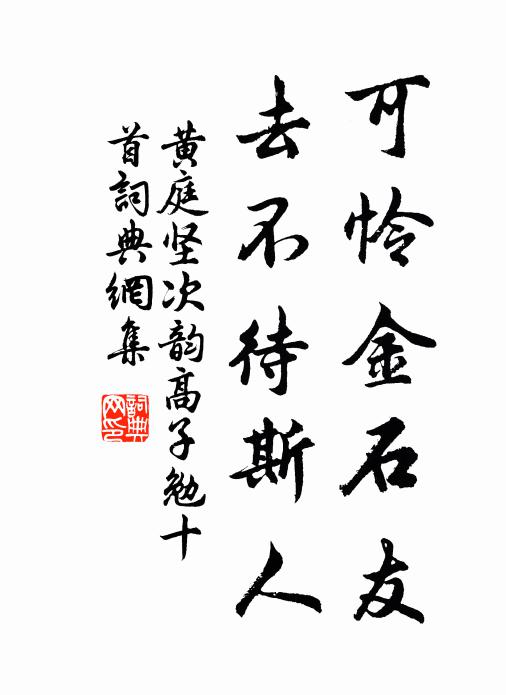 可怜金石友
去不待斯人
黄庭坚次韵高子勉十
首詞典網集
詞典
网印